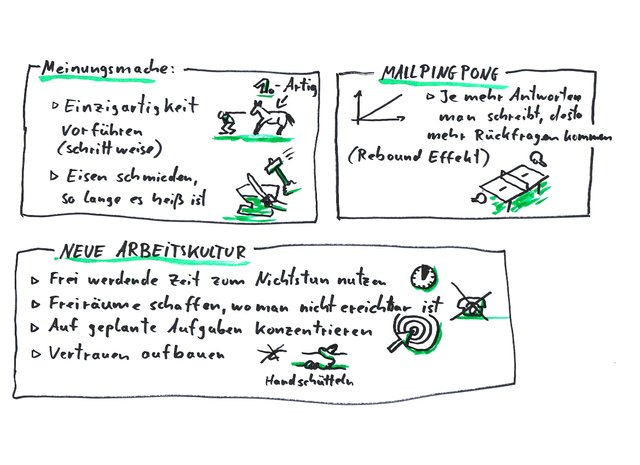 Meinungsmache:
1.-Artig
▷ Einzigartigkeit
vorführen
(schrittweise)
▷ Eisen schmieden,
so lange es heiß ist
MAILPINGPONG
▷ Je mehr Antworten
man schreibt, desto
mehr Rückfragen kommen
(Rebound Effekt)
NEUE ARBEITSKULTUR
▷ Frei werdende Zeit zum Nichtstun nutzen
▷ Freiräume schaffen, wo man nicht erreichbar ist
▷ Auf geplante Aufgaben konzentrieren
▷ Vertrauen aufbauen
Handschütteln